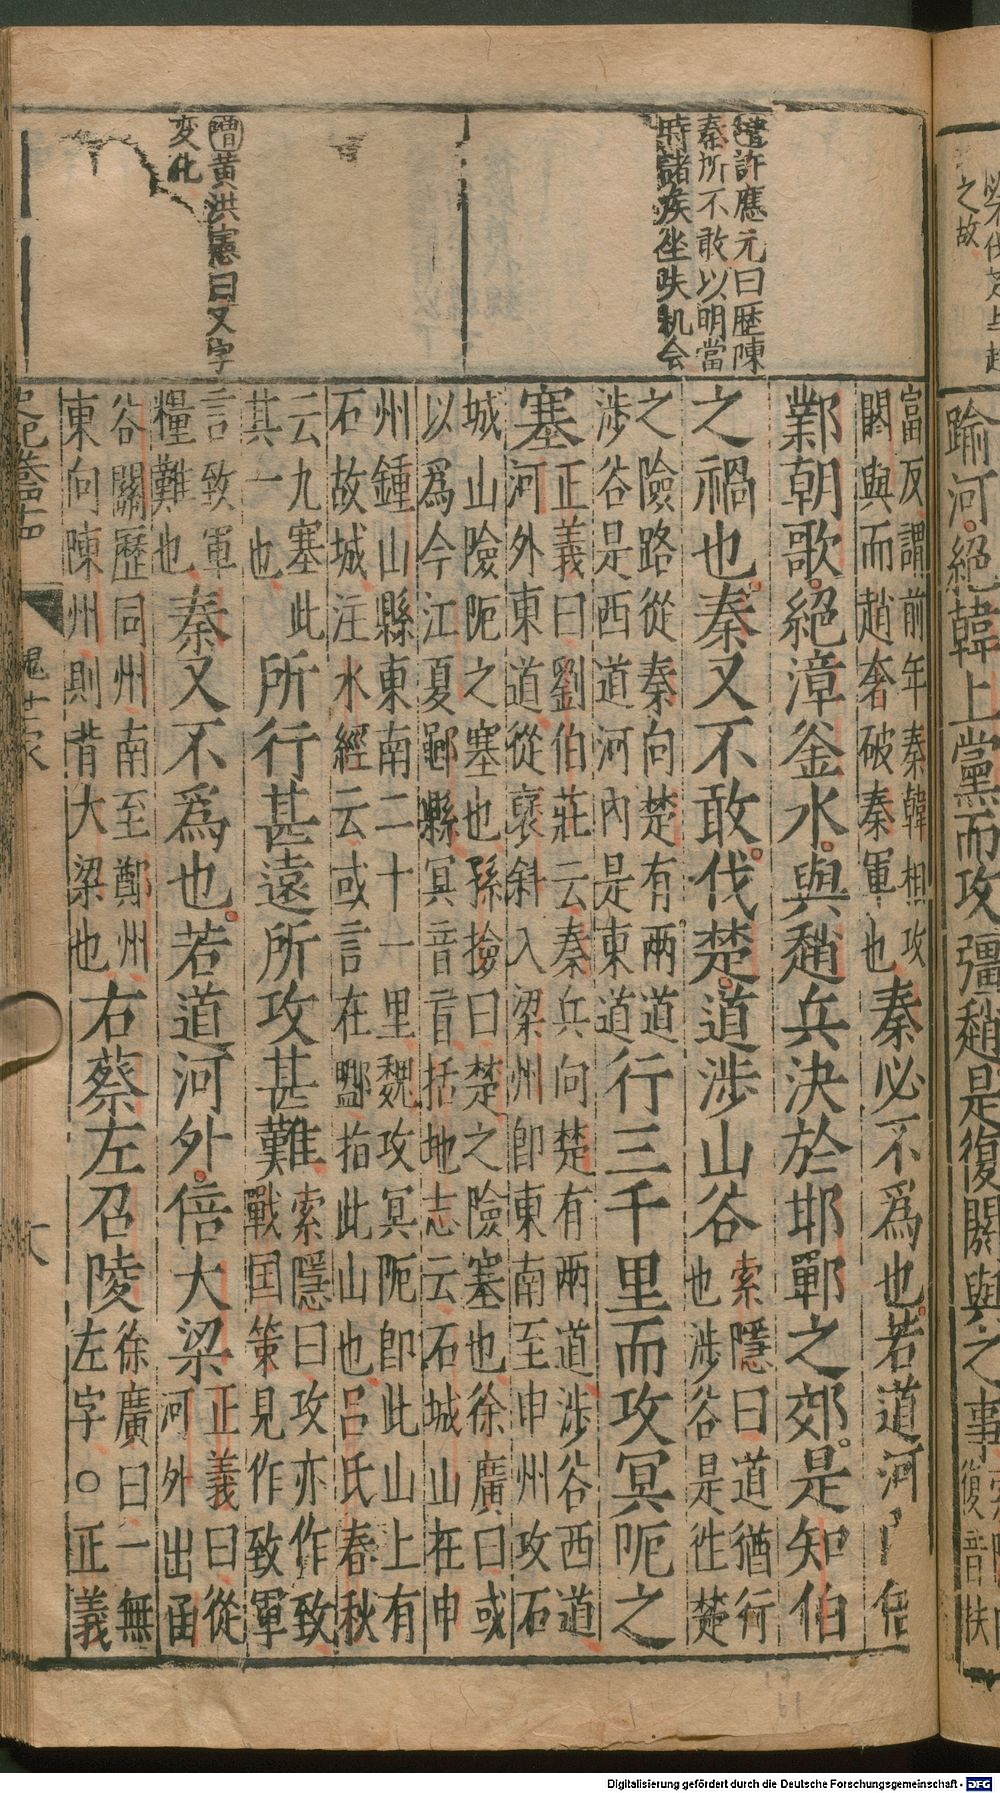 增許應元曰歴陳
秦所不敢以明當
時諸矦坐失机会
增黄洪憲曰又字
変化
富反謂前年秦韓相攻
閼與而趙奢破秦軍也
秦必不爲也若道河
鄴朝歌絕漳釜水與趙兵決於邯鄲之郊是知伯
之禍也秦又不敢伐楚道涉山谷
索隱曰道猶行
也涉谷是徃楚
之險路從秦向楚有兩道
涉谷是西道河內是東道
行三千里而攻冥呃之
塞
正義曰劉伯莊云秦兵向楚有兩道涉谷西道
河外東道從褒斜入梁州即東南至申州攻石
城山險阨之塞也孫撿曰楚之險塞也徐廣曰或
以爲今江夏鄳縣冥音盲括地志云石城山在申
州鍾山縣東南二十一里魏攻冥阨即此山上有
石故城注水經云或言在鄳指此山也吕氏春秋
云九塞此
其一也
所行甚遠所攻甚難
索隱曰攻亦作致
戰国策見作致軍
言致軍
糧難也
秦又不爲也若道河外倍大梁
正義曰從
河外出函
谷關歷同州南至鄭州
東向陳州則背大梁也
右蔡左召陵
徐廣曰一無
左字○正義
魏世家
踰河絕韓上黨而攻彊趙是復閼與之事
復音扶
之故
Digitalisierung gefördert durch die Deutsche Forschungsgemeinschaft - DFG